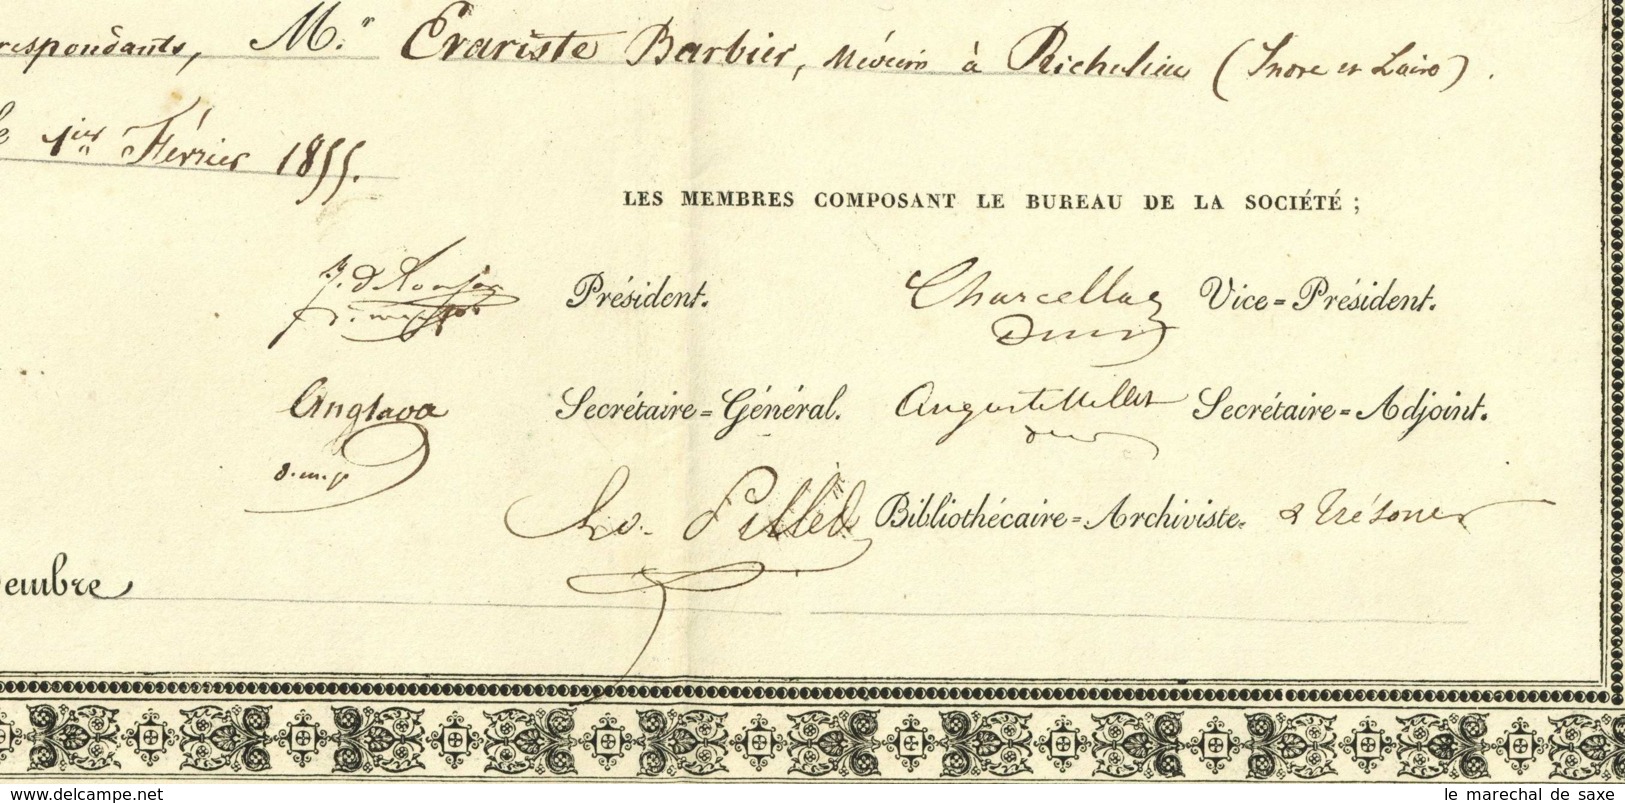 respondants, M.r Evariste Barbier, Médecin à Richelieu (Indre et Loire).
le 1ier Février 1855.
LES MEMBRES COMPOSANT LE BUREAU DE LA SOCIÉTÉ ;
Président. Charcellay Vice=Président.
d.m.p
Anglada Secrétaire=Général. Auguste Millet Secrétaire=Adjoint.
d.m.p
Ls. Pillet Bibliothécaire=Archiviste. & trésorier
Membre
www.delcampe.net
le marechal de saxe